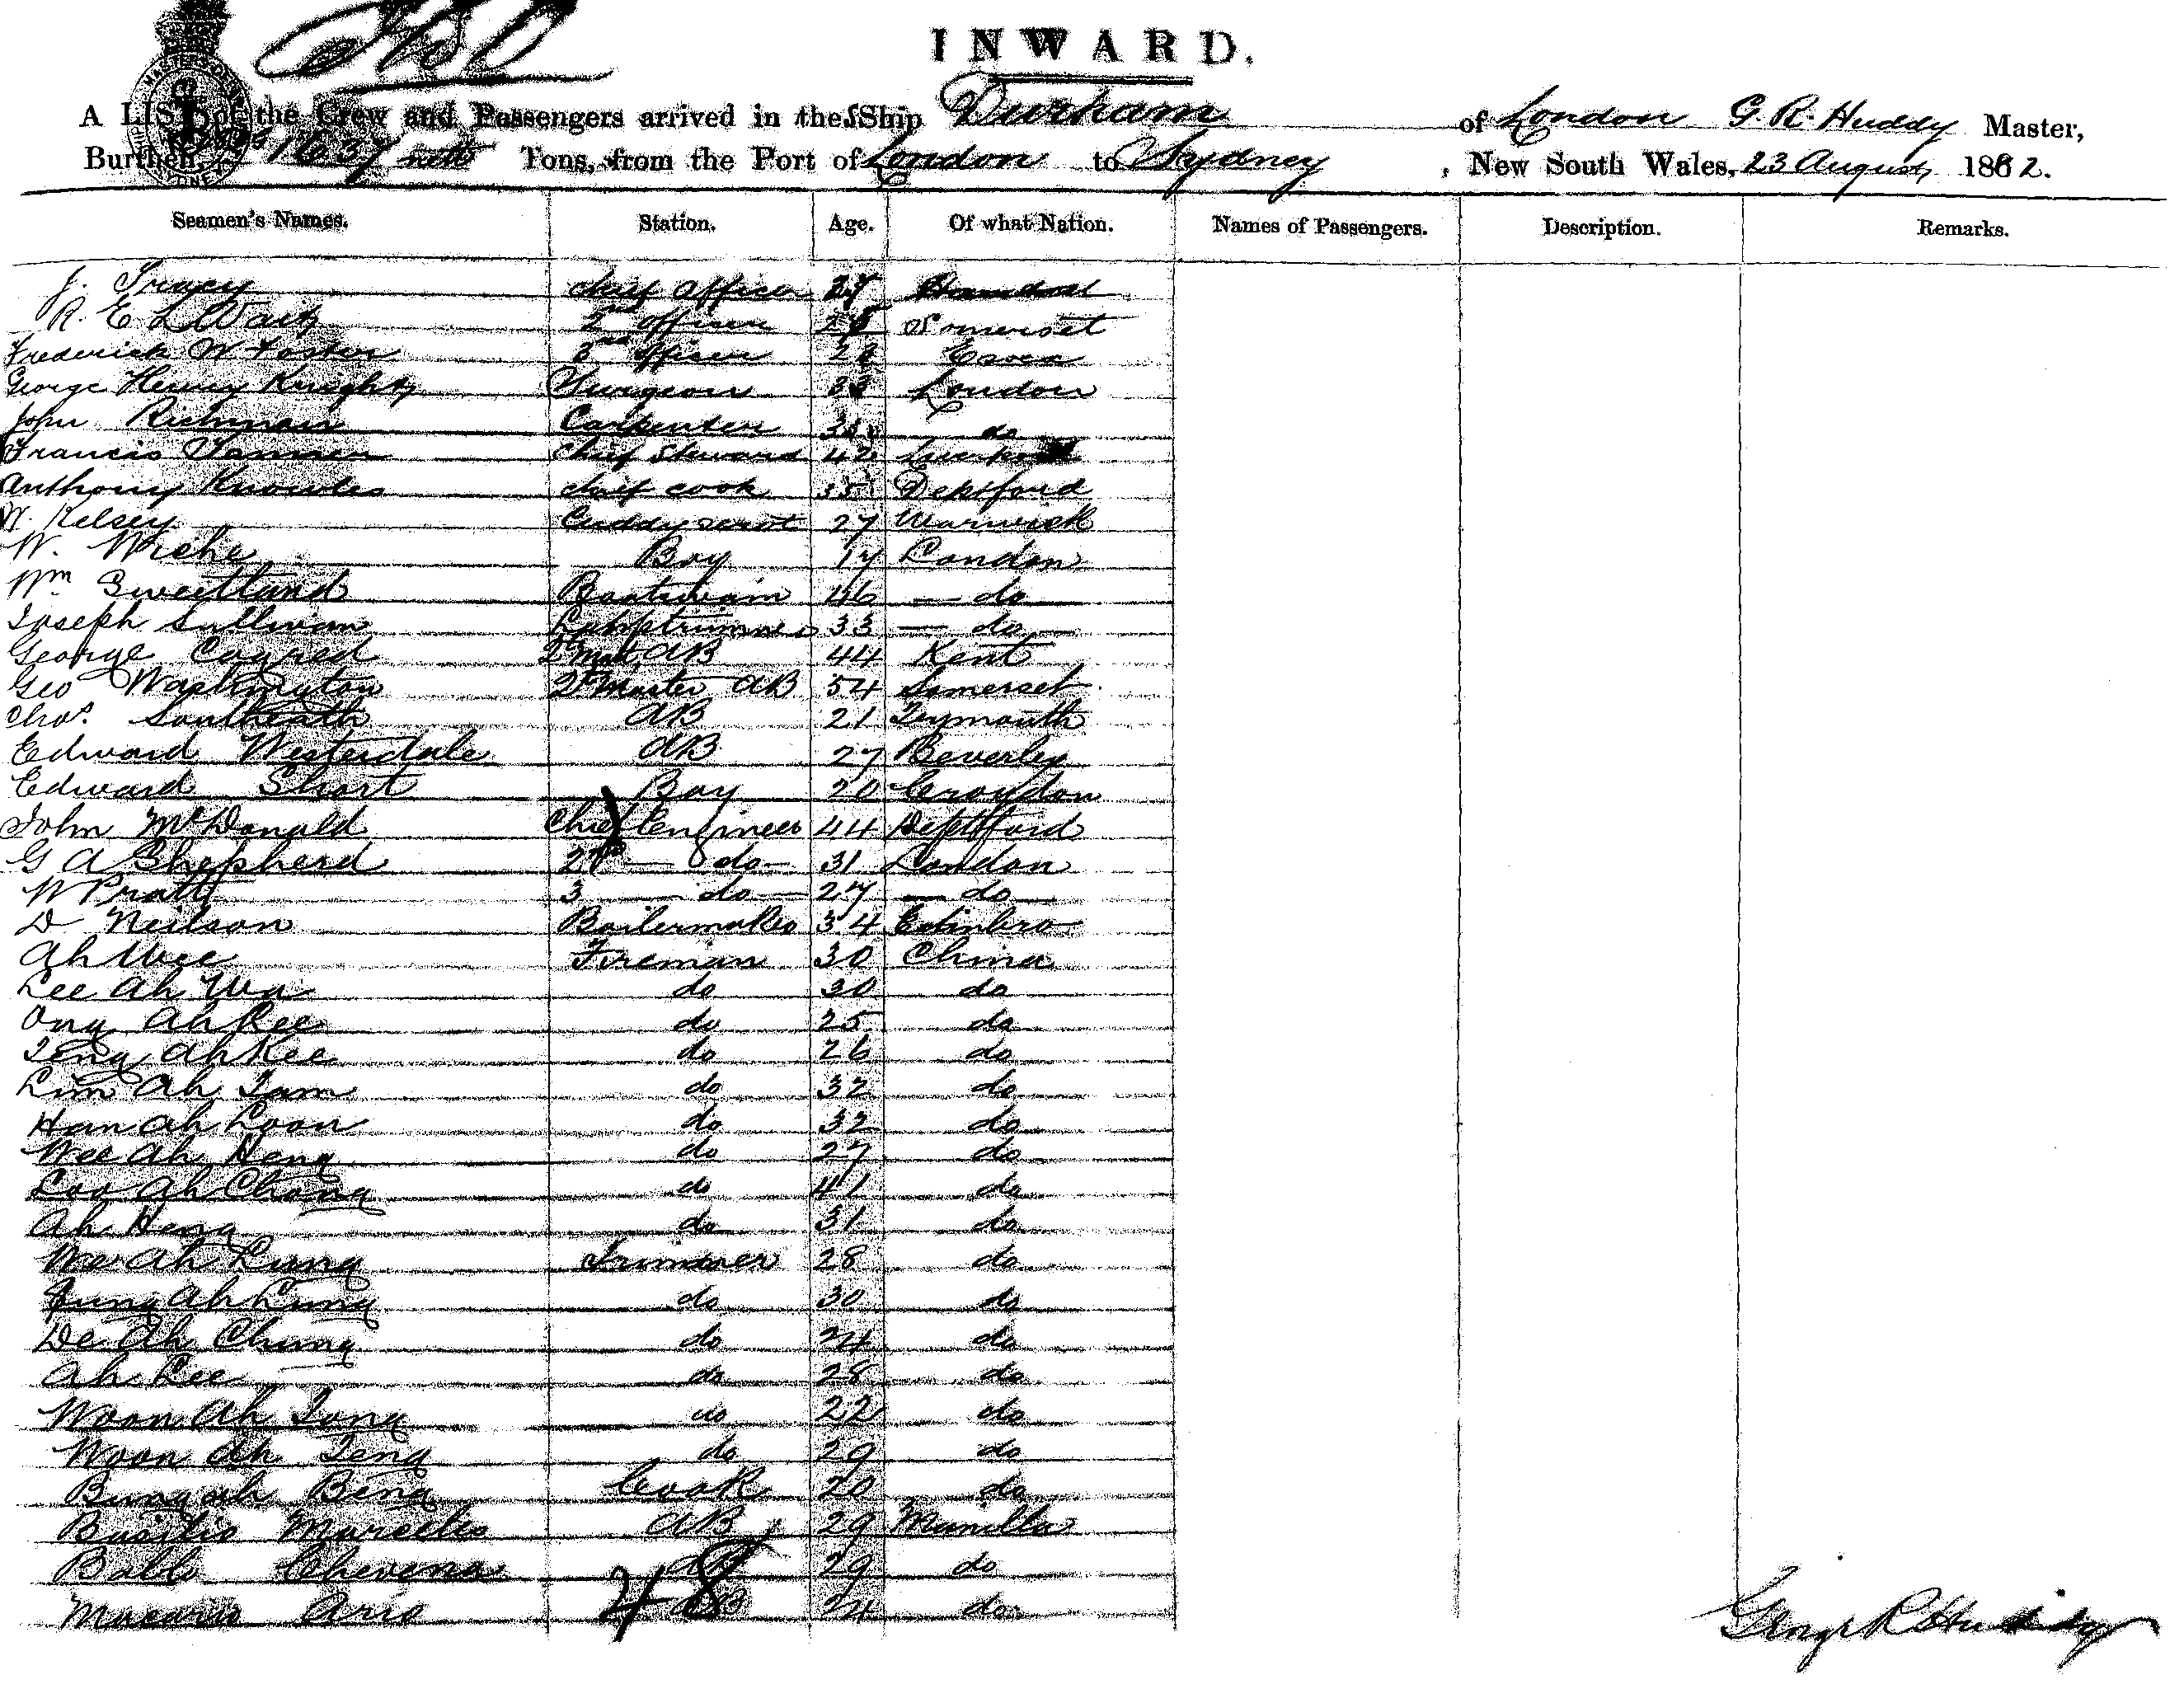 INWARD.
A LIST of the Crew and Passengers arrived in the SShip Durham of London G. R. Huddy Master,
Burthen, 1637 nett Tons, from the Port of London to Sydney, New South Wales, 23 August, 1882.
Seamen's Names. Station. Age. Of what Nation. Names of Passengers. Description. Remarks.
J. Tracy chief officer
R. E. 2nd officer Somerset
Frederick W Foster 3rd officer Essex
George Henry Knight Surgeon 33 London
John Richman Carpenter do
Francis Tanner Chief Steward 42 Liverpool
Anthony Knowles chief cook 35 Deptford
W. Kelsey Cuddy servt 27 Warwick
W. Wiche Boy 17 London
Wm Sweetland Boatswain 46 — do
Joseph Sullivan Lamptrimmer 33 — do —
George Coyred AB 44 Kent
Geo Washington Qr Master AB 54 Somerset
Chas. Southeath AB 21 Teymouth
Edward Westerdale AB 27 Beverley
Edward Short Boy 20 Croydon
John McDonald Chief Engineer 44 Deptford
G A Shepherd 2nd — do — 31 London
W Pratt 3 — do — 27 — do
D Neilson Boilermaker 34 Edinbro
Ah Wee Fireman 30 China
Lee Ah Wa do 30 do
Ong Ah Kee do 25 do
Teng Ah Kee do 26 do
Lim Ah Tam do 32 do
Han Ah Loon do 32 do
Wee Ah Heng do 27 do
Loo Ah Chong do 41 do
Ah Heng do 31 do
We Ah Lung Trimmer 28 do
Fung Ah Lung do 30 do
De Ah Chung do 24 do
Ah Lee do 28 do
Woon Ah Tong do 22 do
Woon Ah Teng do 29 do
Bung ah Beng Cook 20 do
Basilio Marcelio AB 29 Manilla
Pablo Chevena 29 do
Macario Aris AB 24 do
48
George R Huddy